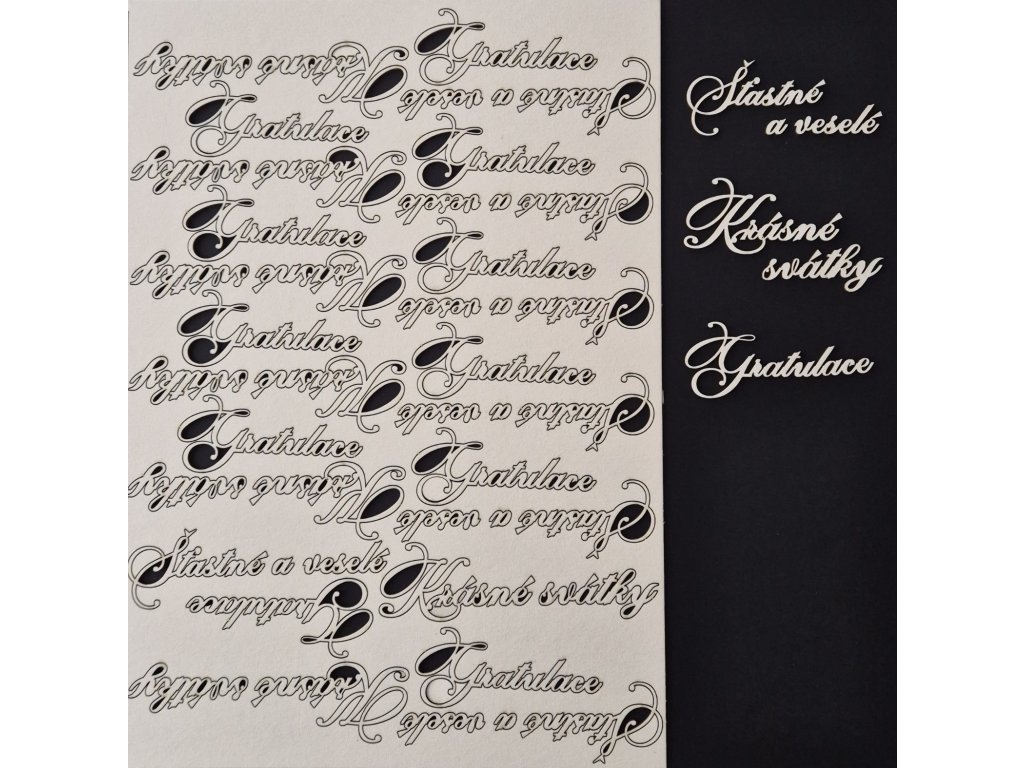 Gratulace
Krásné svátky
Šťastné a veselé
Gratulace
Gratulace
Krásné svátky
Šťastné a veselé
Gratulace
Gratulace
Krásné svátky
Šťastné a veselé
Gratulace
Gratulace
Krásné svátky
Šťastné a veselé
Gratulace
Gratulace
Krásné svátky
Šťastné a veselé
Šťastné a veselé
Krásné svátky
Gratulace
Gratulace
Krásné svátky
Šťastné a veselé
Šťastné
a veselé
Krásné
svátky
Gratulace